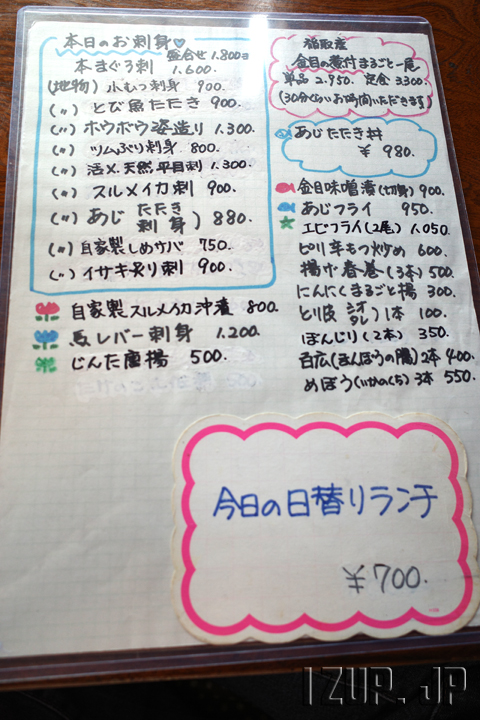 本日のお刺身♡
盛合せ 1.800〜
本まぐろ刺 1.600.
(地物) 小むつ刺身 900.
(〃) とび魚たたき 900.
(〃) ホウボウ姿造り 1.300.
(〃) ツムぶり刺身 800.
(〃) 活〆天然平目刺 1.300.
(〃) スルメイカ刺 900.
(〃) あじ たたき 刺身 ) 880.
(〃) 自家製しめサバ 750.
(〃) イサキ炙り刺 900.
自家製スルメイカ沖漬 800.
馬レバー刺身 1.200.
じんた唐揚 500.
稲取産
金目の煮付まるごと一尾
単品 2.950. 定食 3.300.
(30分ぐらいお時間いただきます)
あじたたき丼
¥ 980.
金目味噌漬(切身) 900.
あじフライ 950.
エビフライ(2尾) 1.050.
ピリ辛もつ炒め 600.
揚げ春巻(3本) 500.
にんにくまるごと揚 300.
とり皮 シオ タレ ) 1本 100.
ぼんじり(2本) 350.
百広(まんぼうの腸) 2本 400.
めぼう(いかのくち) 3本 550.
今日の日替りランチ
¥700.
IZUP.JP